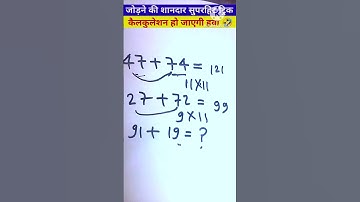 जोड़ने की शानदार सुपरहिट ट्रिक
कैलकुलेशन हो जाएगी हवा 🤣
47+74= 121
11×11
27+72= 99
9×11
91+19=?